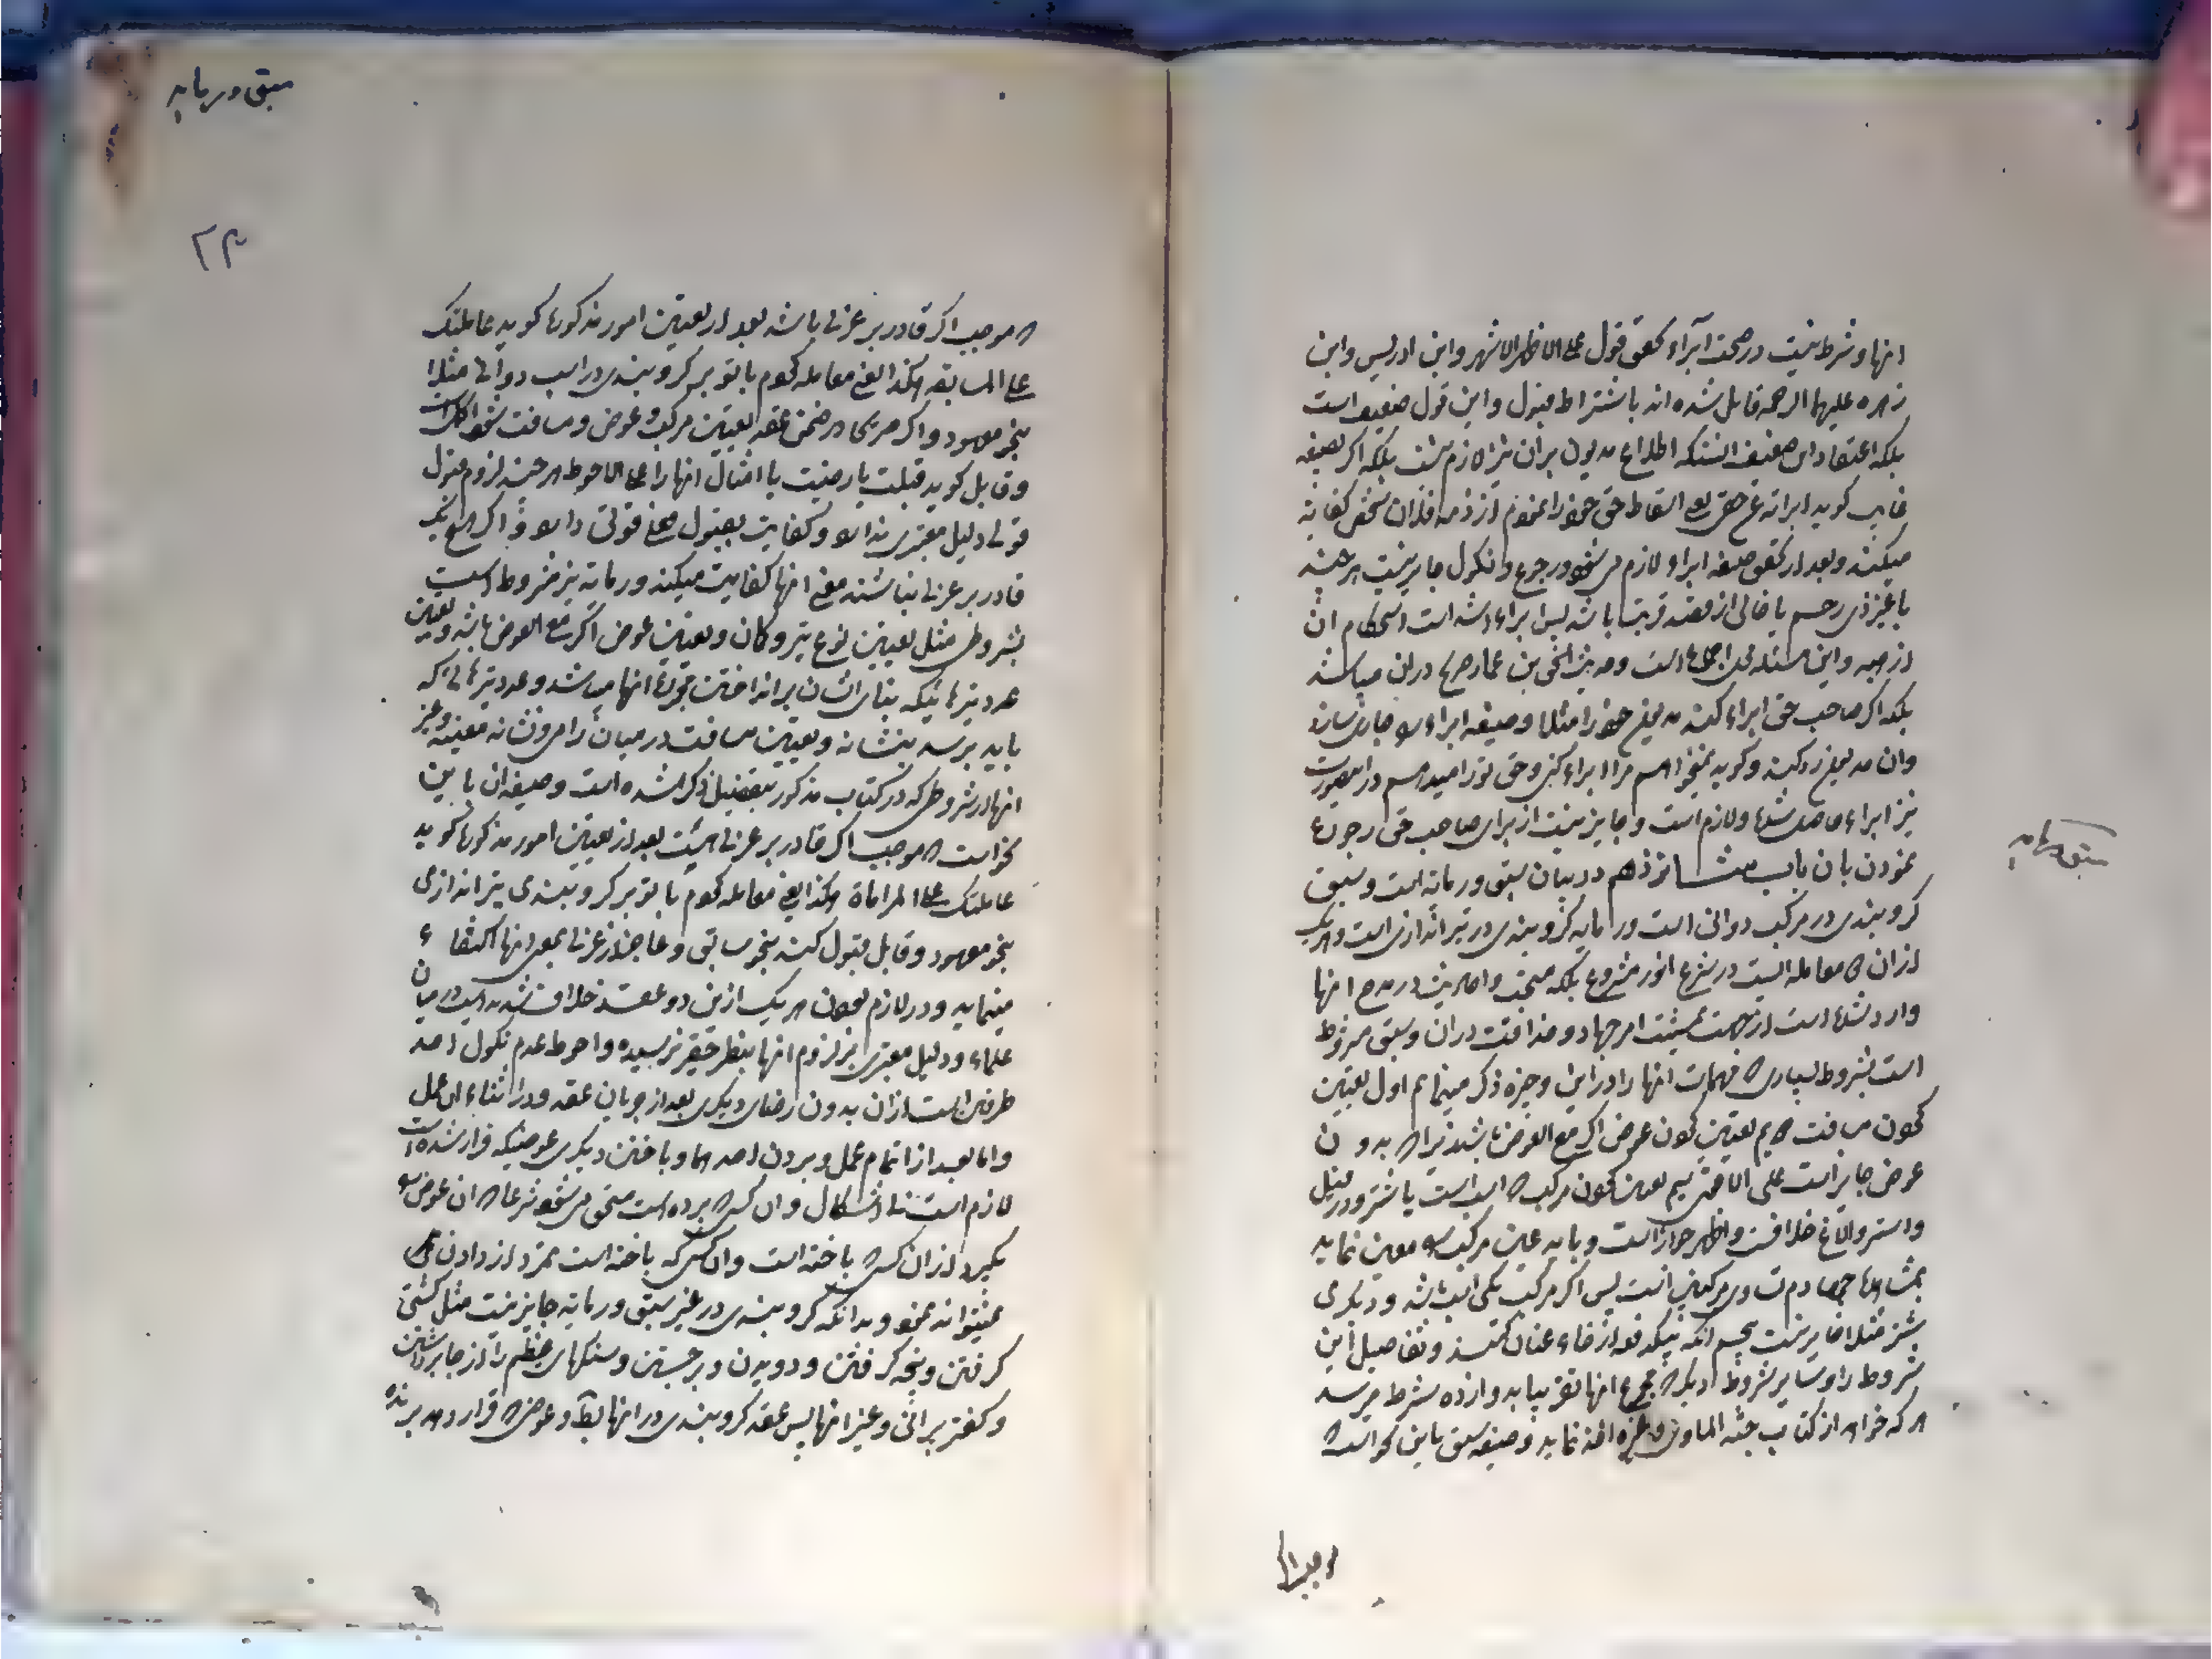 انها و شرط نیست در صحت ابراء تحقق قبول علی الاظهر الاشهر و ابن ادریس و ابن
زهره علیهما الرحمه قایل شده‌اند باشتراط قبول و این قول ضعیف است
بلکه اعتقاد این ضعیف انستکه اطلاع مدیون بران نیز لازم نیست بلکه اگر بصیغه
غایب گوید ابراته عن حقی یعنی اسقاط حق خود را نمودم از ذمه فلان شخص کفایه
میکند و بعد از تحقق صیغه ابراء لازم می شود و رجوع و نکول جایز نیست هر چند
با غیر ذی رحم یا خالی از قصد قربت باشد پس ابراء اشد است استحکام ان
از هبه و این مسئله محل اجماع است و حدیث اسحق بن عمار صریح در ان میباشد
بلکه اگر صاحب حق ابراء کند مدیون خود را مثلا و صیغه ابراء را جاری سازد
وان مدیون رد کند و گوید نمیخواهم مرا ابراء کنی و حق تو را میدهم در اینصورت
نیز ابراء حاصل شده و لازم است و جایز نیست از برای صاحب حق رجوع
نمودن بان باب شانزدهم در بیان سبق و رمایه است و سبق
گرو بندی در مرکب دوانی است و رمایه گرو بندی در تیراندازی است و هر یک
ازان دو معامله ایست در شرع انور مشروع بلکه مستحب و احادیث در مدح انها
وارد شده است از جهت تمشیت امر جهاد و حذاقت دران و سبق مشروط
است بشروط بسیاری که مهمات انها را در این وجیزه ذکر مینمایم اول تعیین
نمودن مسافت دویم تعیین نمودن عوض اگر مع العوض باشد زیرا که بدون
عوض جایز است علی الاقوی سیم تعیین نمودن مرکب که اسب است یا شتر و در فیل
و استر و الاغ خلافست و اظهر جواز است و باید عین مرکب را معین نماید
بمشاهده چهارم تساوی مرکبین است پس اگر مرکب یکی اسب باشد و دیگری
شتر مثلا جایز نیست پنجم انکه بیکدفعه ارخاء عنان کنند و تفاصیل این
شروط را و سایر شروط دیگر که مجموع انها تقریبا بدوازده شرط میرسد
هر که خواهد از کتاب جنة الماوی و غیره اخذ نماید و صیغه سبق باین نحو است که
سبق و رمایه
سبق و رمایه
۲۳
که موجب اگر قادر بر عربی باشد بعد از تعیین امور مذکوره گوید عاملتک
علی المسابقه هکذا یعنی معامله کردم با تو بر گرو بندی در اسب دوانی مثلا
بنحو معهود و اگر صریحا در ضمن عقد تعیین مرکب و عوض و مسافت شود اکمل است
و قابل گوید قبلت یا رضیت یا امثال انها را علی الاحوط هر چند لزوم قبول
قولی دلیل معتبری ندارد و کفایت بقبول فعلی قوتی دارد و اگر هیچ یک
قادر بر عربی نباشند معنی انها کفایت میکند و رمایه نیز مشروط است
بشروطی مثل تعیین نوع تیر و کمان و تعیین عوض اگر مع العوض باشد و تعیین
عدد تیرهائیکه بنای ایشان بر انداختن مجموع انها میباشد و عدد تیرهائی که
باید برسد بنشانه و تعیین مسافت در میان رامی و نشانه معینه و غیر
انها از شروطی که در کتاب مذکور بتفصیل ذکر شده است و صیغه ان باین
نحو است که موجب اگر قادر بر عربی هست بعد از تعیین امور مذکوره گوید
عاملتک علی المراماة هکذا یعنی معامله کردم با تو بر گرو بندی تیراندازی
بنحو معهود و قابل قبول کند بنحو سابق و عاجز از عربی بمعنی انها اکتفاء
مینماید و در لازم بودن هر یک از این دو عقد خلاف شدید است در میان
علماء و دلیل معتبری بر لزوم انها بنظر حقیر نرسیده و احوط عدم نکول احد
طرفین است ازان بدون رضای دیگری بعد از جریان عقد و در اثناء ان عمل
و اما بعد از اتمام عمل و بردن احدهما و باختن دیگری عوضیکه قرار شده است
لازم است بی اشکال و ان کسی که برده است مستحق می شود شرعا که ان عوض را
بگیرد از ان کسی که باخته است و ان کسی که باخته است تمرد از دادن
نمیتواند نمود و بدانکه گرو بندی در غیر سبق و رمایه جایز نیست مثل کشتی
گرفتن و پنجه گرفتن و دویدن و برجستن و سنگهای عظیم را از جا برداشتن
و کفتر پرانی و غیر انها پس عقد گرو بندی در انها باطل و عوضی که قرار دهد برنده